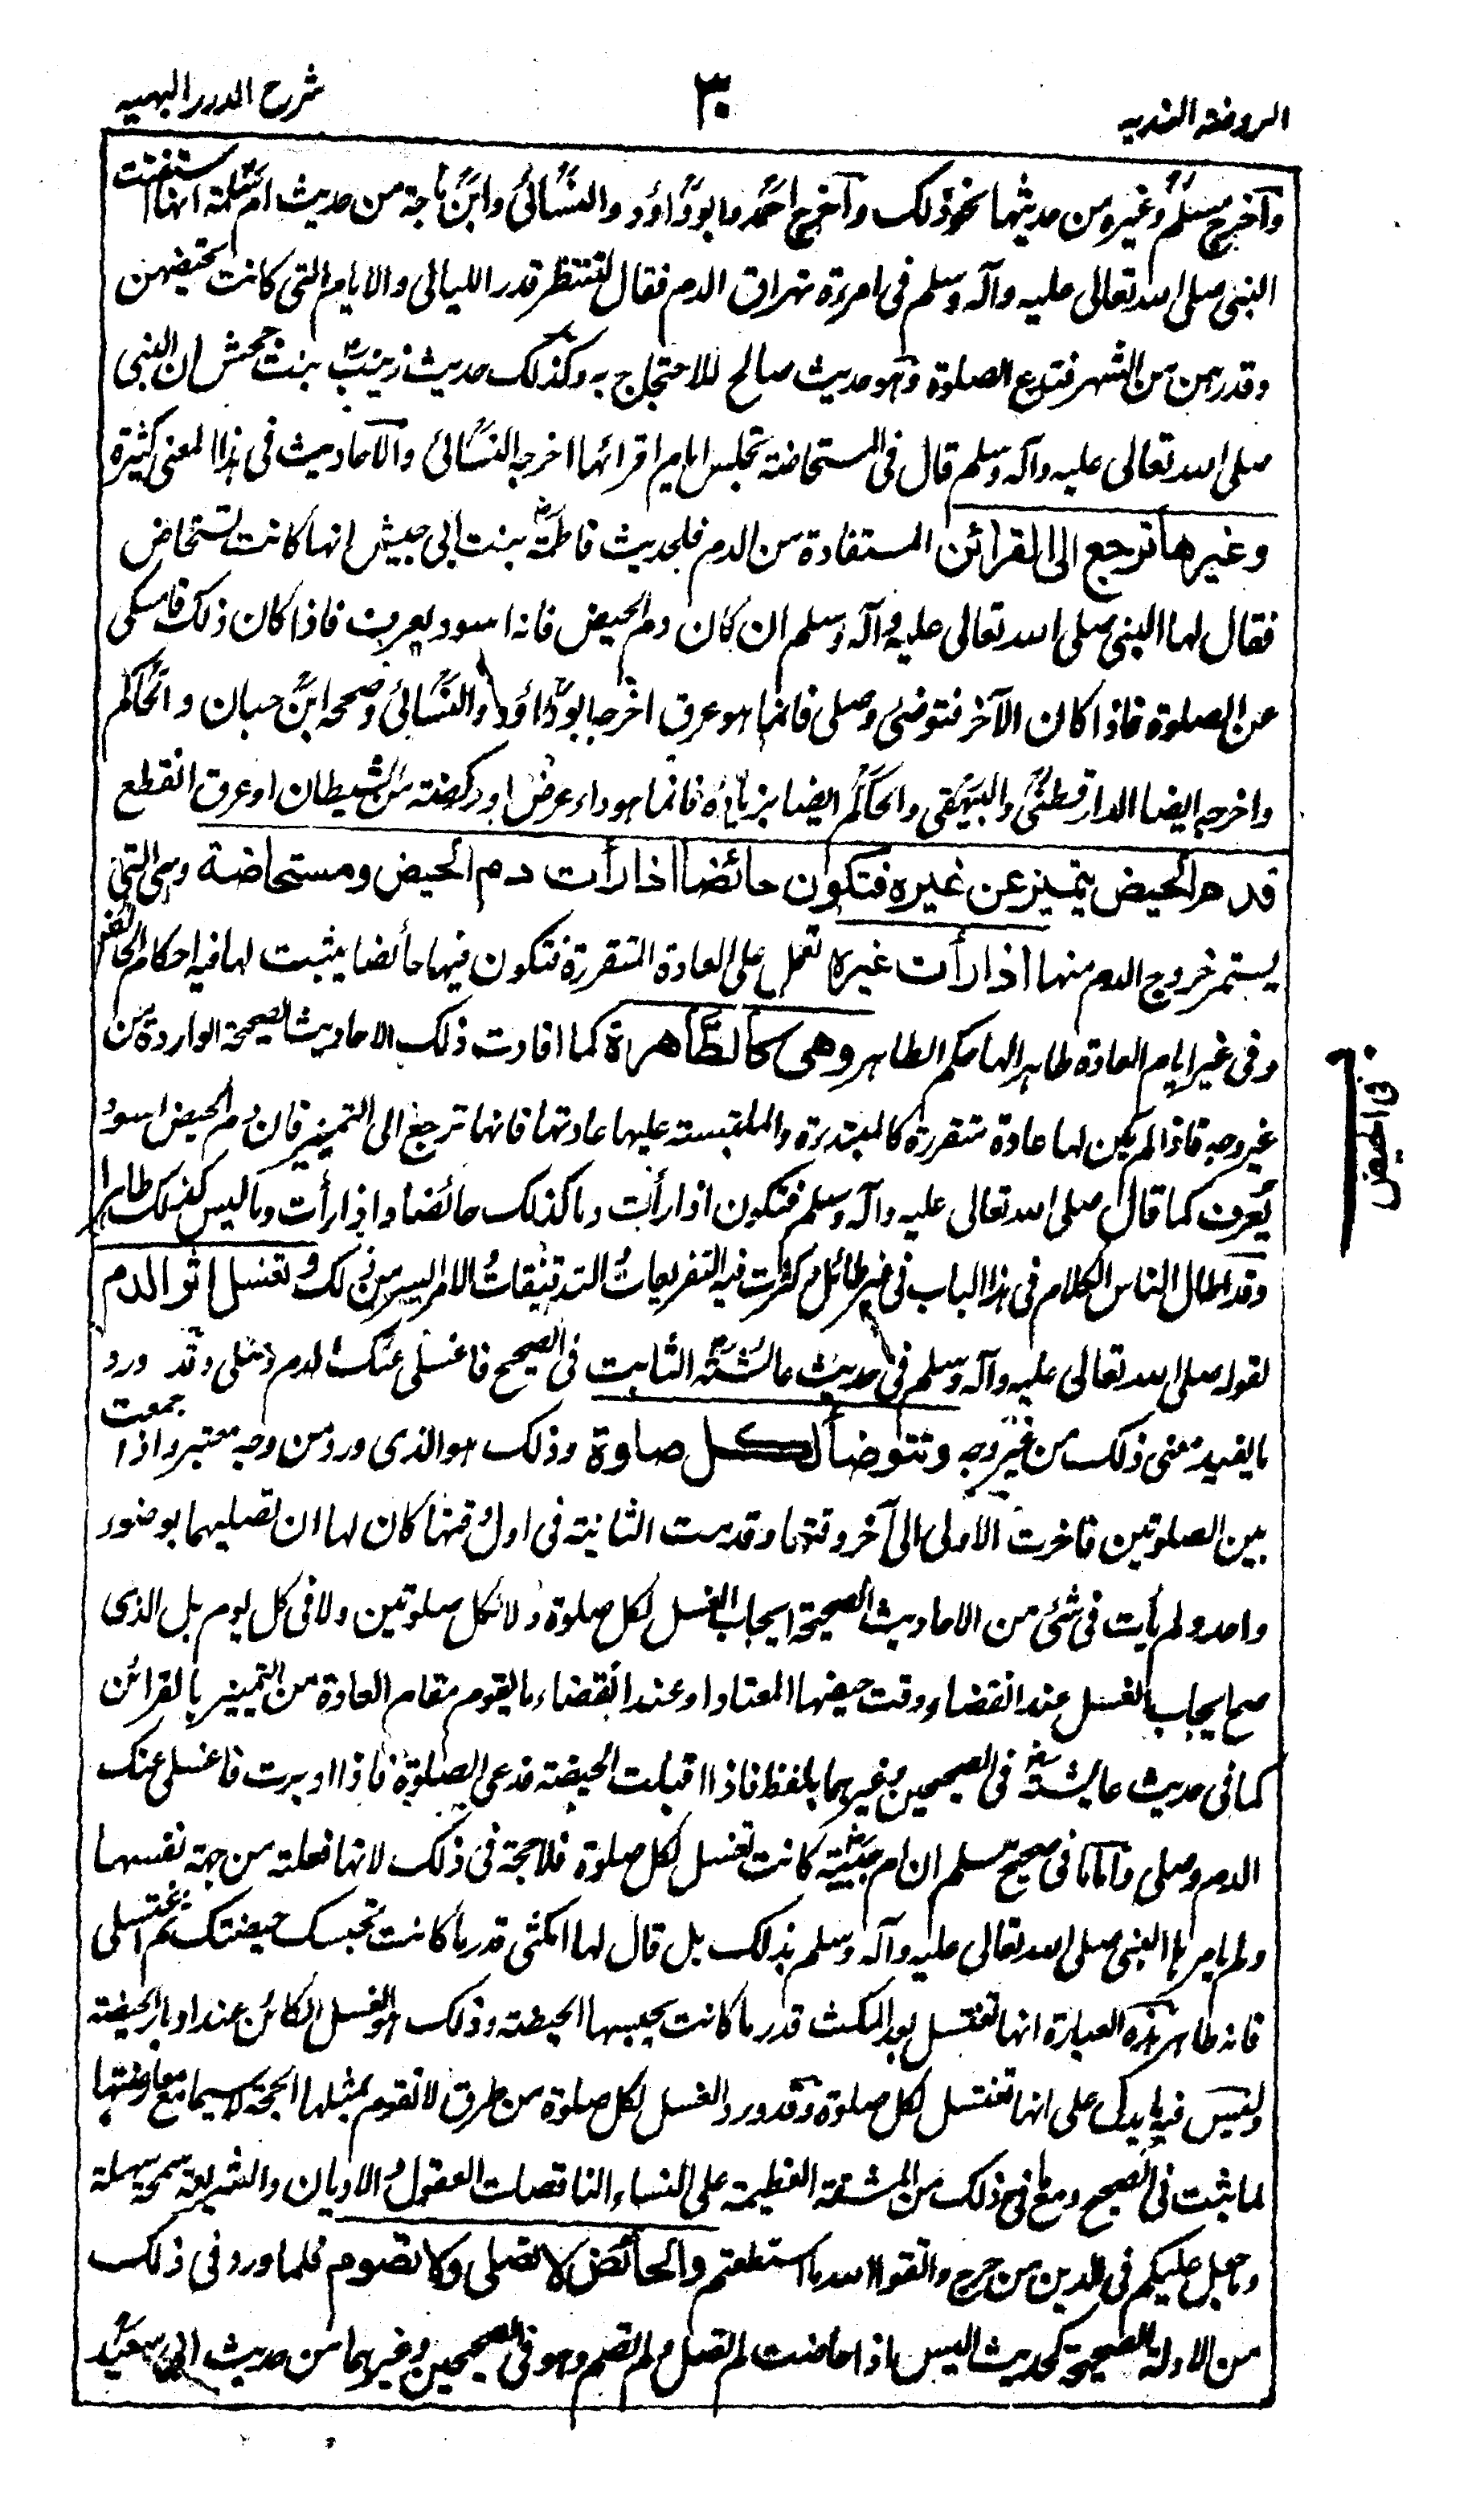 الروضة الندية
٣٠
شرح الدرر البهية
وآخرج مسلم وغيره من حديثها نحو ذلك وآخرج احمد وابو داؤد والنسائی وابن ماجة من حديث ام سلمة انها استفتت
النبی صلی الله تعالی عليه وآله وسلم فی امرءة تهراق الدم فقال لتنتظر قدر الليالی والايام التی كانت تحيضهن
وقدرهن من الشهر فتدع الصلوة وهو حديث صالح للاحتجاج به وكذلك حديث زينب بنت جحش ان النبی
صلی الله تعالی عليه وآله وسلم قال فی المستحاضة تجلس ايام اقرائها اخرجه النسائی والاحاديث فی هذا المعنی كثيرة
وغيرها ترجع الی القرائن المستفادة من الدم فلحديث فاطمة بنت ابی حبيش انها كانت تستحاض
فقال لها النبی صلی الله تعالی عليه وآله وسلم ان كان دم الحيض فانه اسود يعرف فاذا كان ذلك فامسكی
عن الصلوة فاذا كان الآخر فتوضئ وصلی فانما هو عرق اخرجه ابو داؤد والنسائی وصححه ابن حبان والحاكم
واخرجه ايضا الدارقطنی والبيهقی والحاكم ايضا بزيادة فانما هو داء عرض او ركضة من الشيطان او عرق انقطع
فدم الحيض يتميز عن غيره فتكون حائضا اذا رأت دم الحيض ومستحاضة وهی التی
يستمر خروج الدم منها اذا رأت غيره تعمل علی العادة المتقررة فتكون فيها حائضا يثبت لها فيه احكام الحائض
وفی غير ايام العادة طاهرا لها حكم الطاهر وهی كالطاهرة كما افادت ذلك الاحاديث الصحيحة الواردة من
غير وجه فاذا لم يكن لها عادة متقررة كالمبتدءة والملتبسة عليها عادتها فانها ترجع الی التمييز فان دم الحيض اسود
يعرف كما قال صلی الله تعالی عليه وآله وسلم فتكون اذا رأت دما كذلك حائضا واذا رأت دما ليس كذلك طاهرا
وقد اطال الناس الكلام فی هذا الباب فی غير طائل وكثرت فيه التفريعات والتدقيقات والامر ايسر من ذلك وتغسل اثر الدم
لقوله صلی الله تعالی عليه وآله وسلم فی حديث عائشة الثابت فی الصحيح فاغسلی عنك الدم وصلی وقد ورد
ما يفيد معنی ذلك من غير وجه وتتوضأ لكل صلوة وذلك هو الذی ورد من وجه معتبر واذا جمعت
بين الصلوتين فاخرت الاولی الی آخر وقتها وقدمت الثانية فی اول وقتها كان لها ان تصليهما بوضوء
واحد ولم يأت فی شئ من الاحاديث الصحيحة ايجاب الغسل لكل صلوة ولا لكل صلوتين ولا فی كل يوم بل الذی
صح ايجاب الغسل عند انقضاء وقت حيضها المعتاد او عند انقضاء ما يقوم مقام العادة من التمييز بالقرائن
كما فی حديث عائشة فی الصحيحين وغيرهما بلفظ فاذا اقبلت الحيضة فدعی الصلوة فاذا ادبرت فاغسلی عنك
الدم وصلی واما ما فی صحيح مسلم ان ام حبيبة كانت تغتسل لكل صلوة فلا حجة فی ذلك لانها فعلته من جهة نفسها
ولم يامرها النبی صلی الله تعالی عليه وآله وسلم بذلك بل قال لها امكثی قدر ما كانت تحبسك حيضتك ثم اغتسلی
فانه ظاهر هذه العبارة انها تغتسل بعد المكث قدر ما كانت تحبسها الحيضة وذلك هو الغسل الكائن عند ادبار الحيضة
وليس فيه ما يدل علی انها تغتسل لكل صلوة وقد ورد الغسل لكل صلوة من طرق لا تقوم بمثلها الحجة لا سيما مع معارضتها
لما ثبت فی الصحيح ومع ما فی ذلك من المشقة العظيمة علی النساء الناقصات العقول والاديان والشريعة سمحة سهلة
وما جعل عليكم فی الدين من حرج واتقوا الله ما استطعتم والحائض لا تصلی ولا تصوم فلما ورد فی ذلك
من الادلة الصحيحة كحديث اليس اذا حاضت لم تصل ولم تصم وهو فی الصحيحين وغيرهما من حديث ابی سعيد
ف الحيض